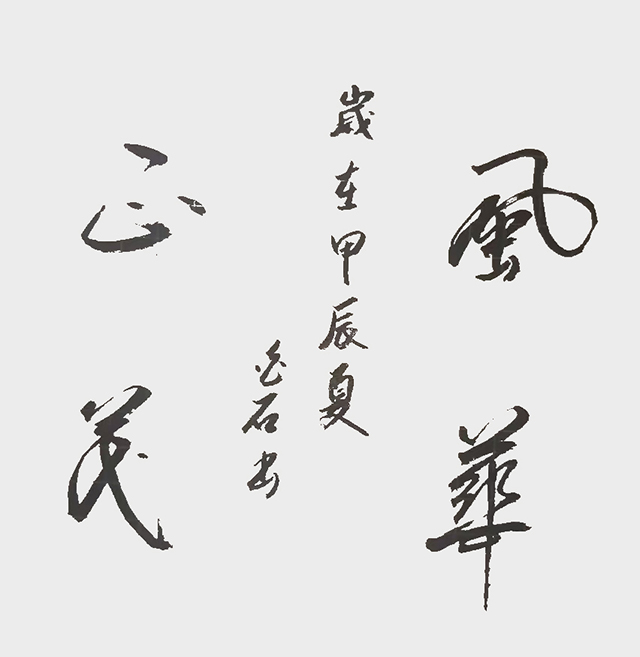 風華
歲在甲辰夏
石书
正茂